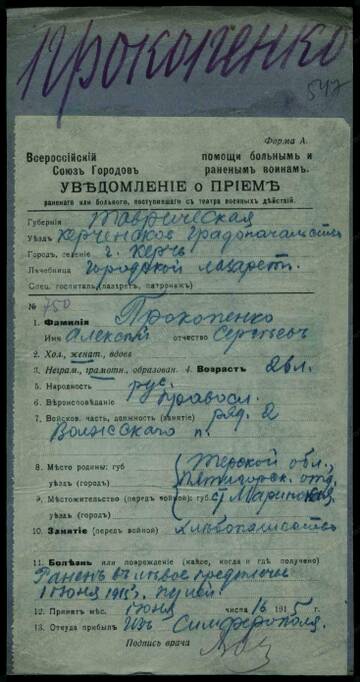 Прокопенко
547
Форма А.
Всероссійскій помощи больнымъ и
Союзъ Городовъ раненымъ воинамъ.
УВѢДОМЛЕНІЕ о ПРІЕМѢ
раненаго или больного, поступившаго съ театра военныхъ дѣйствій.
Губернія Таврическая
Уѣздъ Керченское Градоначальство
Городъ, селеніе г. Керчь
Лѣчебница Городской лазаретъ.
Спец. госпиталь (лазарет, патронаж)
№ 750
1. Фамилія Прокопенко
Имя Алексѣй отчество Сергѣевъ
2. Хол., женат., вдовъ
3. Неграм., грамотн., образован. 4. Возрастъ 26 л.
5. Народность рус.
6. Вѣроисповѣданіе Правосл.
7. Войсков. часть, должность (занятіе) ряд. 2
Волжскаго п.
8. Мѣсто родины: губ Терской обл.,
уѣздъ (городъ) Пятигорск. отд.
9. Мѣстожительство (передъ войной): губ с. Маринская
уѣздъ (городъ)
10. Занятіе (передъ войной) Хлѣбопашество
11. Болѣзнь или поврежденіе (какое, когда и гдѣ получено)
Раненъ въ лѣвое предплечье
1 Іюня 1915 г. пулей.
12. Принятъ мѣс. Іюня числа 16 1915 г.
13. Откуда прибылъ Изъ Симферополя.
Подпись врача